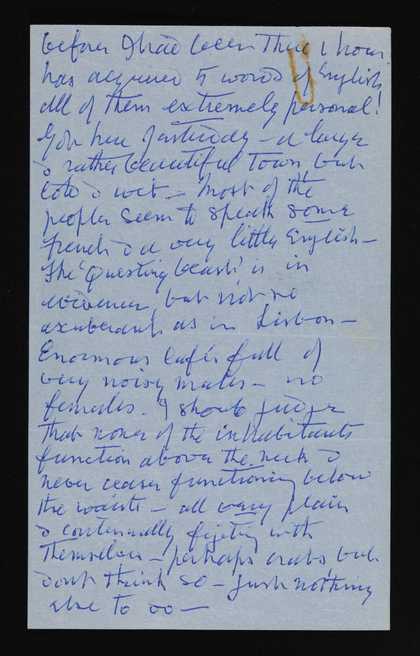 before I had been there 1 hour
has acquired 5 words of English
all of them extremely personal!
Got here yesterday – a large
& rather beautiful town, but
cold & wet – Most of the
people seem to speak some
French & a very little English –
The 'Questing beast' is in
evidence but not so
exuberant as in Lisbon –
Enormous cafés full of
very noisy males – no
females. I should judge
that none of the inhabitants
function above the neck &
never cease functioning below
the waist – all very plain
& continually figiting with
themselves – perhaps crabs, but
don't think so – just nothing
else to do –